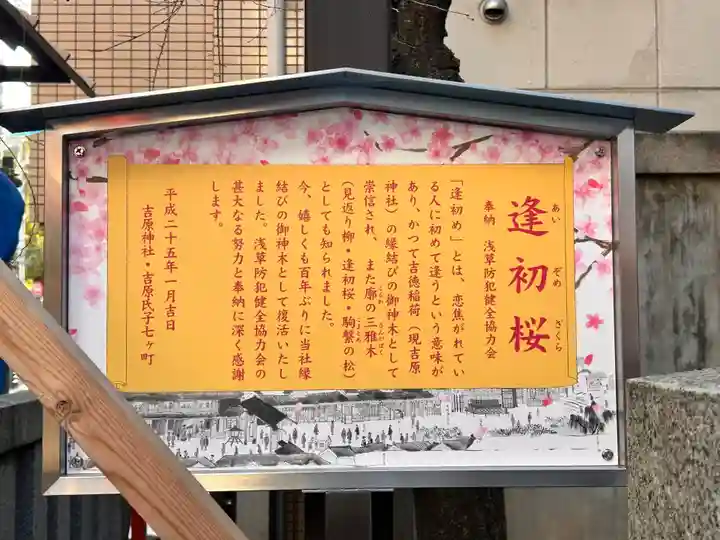 逢初桜
あいぞめざくら
奉納　浅草防犯健全協力会
「逢初め」とは、恋焦がれてい
る人に初めて逢うという意味が
あり、かつて吉徳稲荷（現吉原
神社）の縁結びの御神木として
崇信され、また廓の三雅木
くるわ
さんがぼく
（見返り柳・逢初桜・駒繋の松）
こまとめ
としても知られました。
今、嬉しくも百年ぶりに当社縁
結びの御神木として復活いたし
ました。浅草防犯健全協力会の
甚大なる努力と奉納に深く感謝
します。
平成二十五年一月吉日
吉原神社・吉原氏子七ヶ町